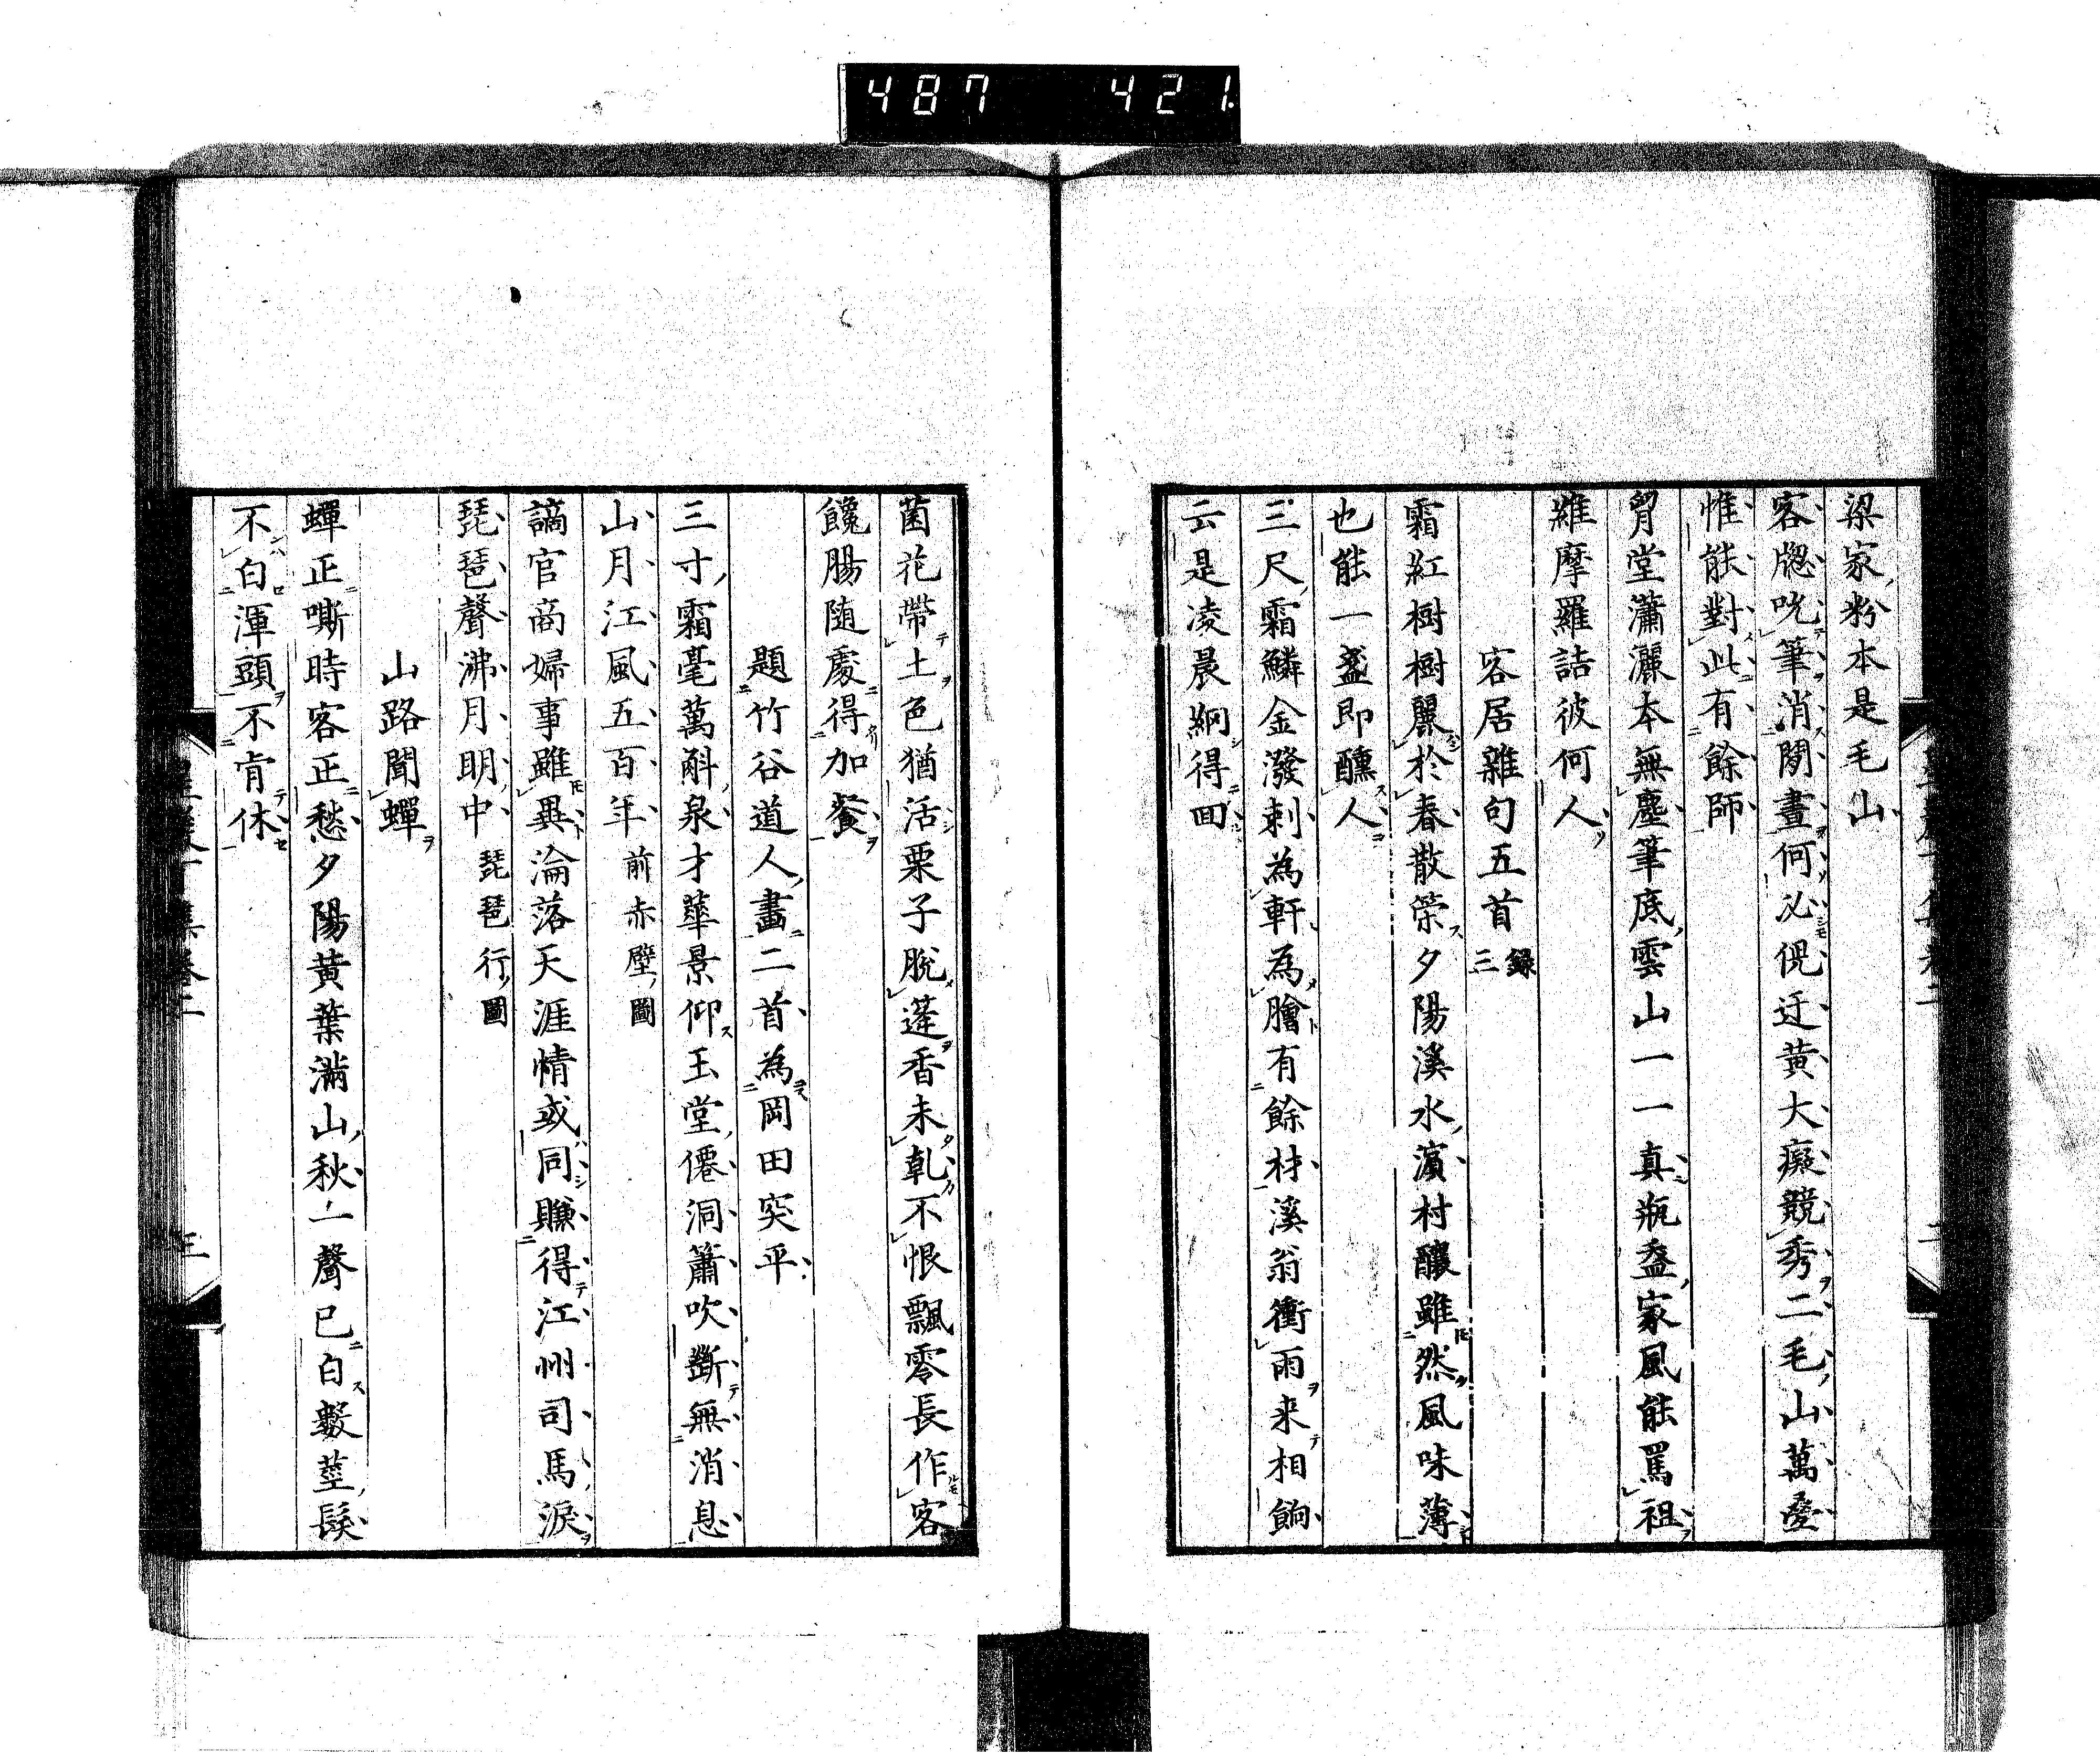 487 421
梁家粉本是毛山
客牕吮筆消閑晝何必俔迂黄大癡競秀二毛山萬疊
惟能對此有餘師
胷堂瀟灑本無塵筆底雲山一一真瓶盎家風能罵祖
維摩羅詰彼何人
客居雜句五首 錄三
霜紅樹樹麗於春散策夕陽溪水濱村釀雖然風味薄
也能一盞即醺人
三尺霜鱗金潑剌為軒為膾有餘材溪翁衝雨来相餉
云是凌晨網得囬
菌花帶土色猶活栗子脫蓬香未乾不恨飄零長作客
饞腸随處得加餐
題竹谷道人畫二首為岡田突平
三寸霜毫萬斛泉才華景仰玉堂僊洞簫吹斷無消息
山月江風五百年 前赤壁圖
謫官商婦事雖異淪落天涯情或同賺得江州司馬淚
琵琶聲沸月明中 琵琶行圖
山路聞蟬
蟬正嘶時客正愁夕陽黄葉滿山秋一聲已白數莖髮
不白渾頭不肯休